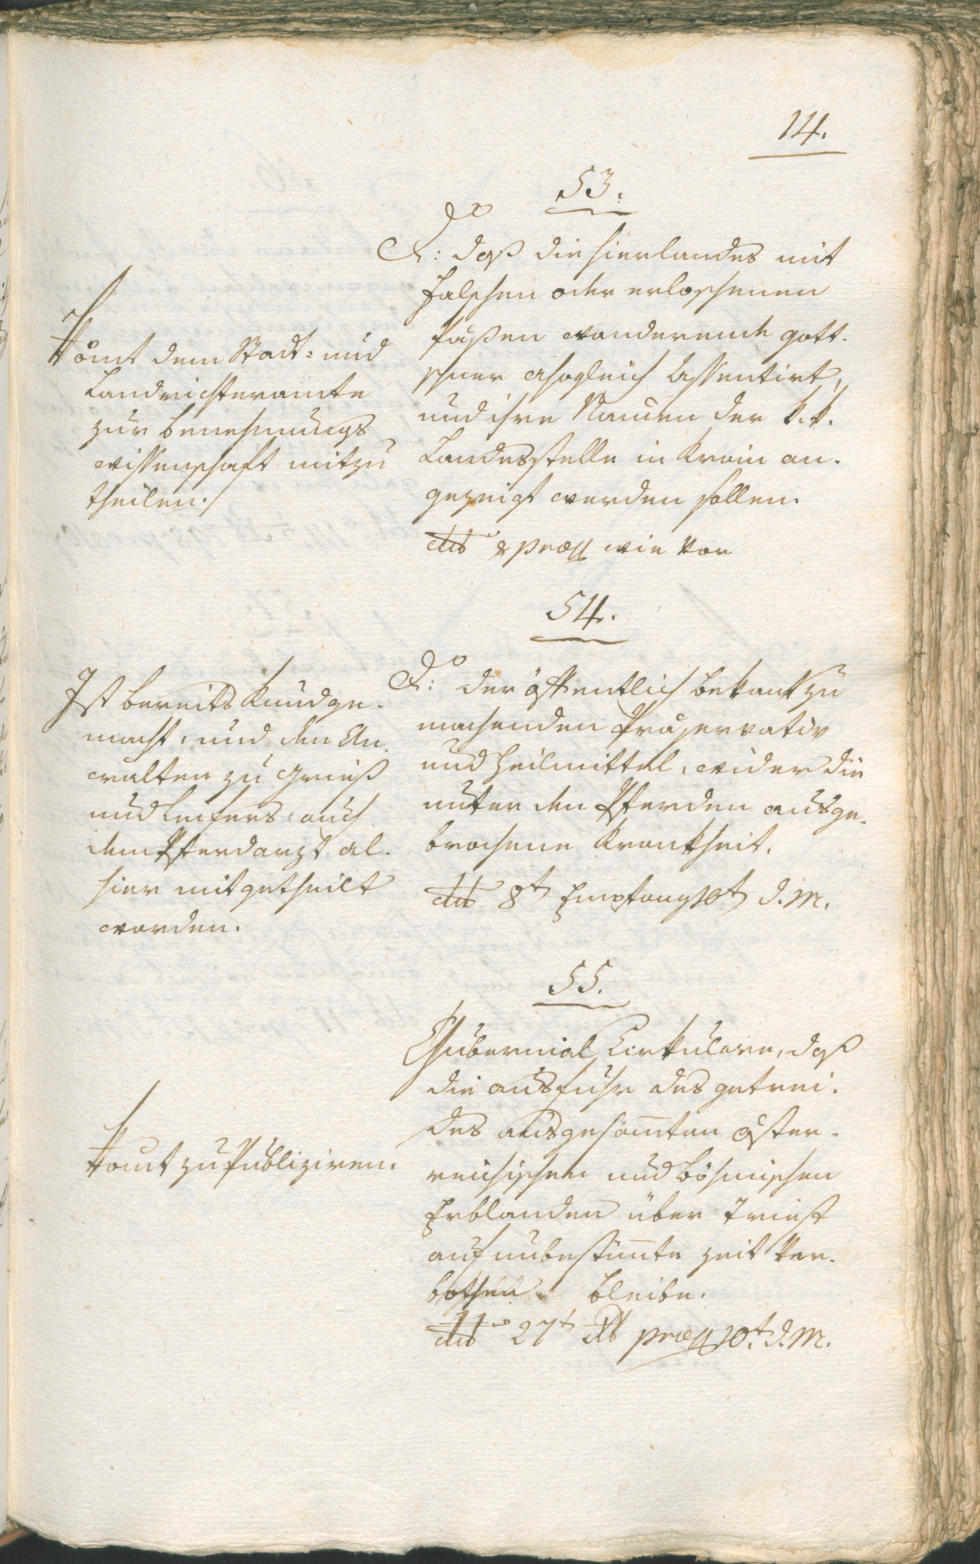 14.
53.
Do
G: daß die hierlandes mit
falschen oder erloschenen
Päßen wandernde gott-
scheer sogleich Assentirt,
und ihre Namen der k.k.
Landesstelle in Krain an-
gezeigt werden sollen.
dto & præs wie vor
Kömt dem Stadt- und
Landrichteramte
zur benehmungs
wissenschaft mitzu
theilen./
54.
Do
G: der öffentlich bekant zu
machenden Präservativ
und Heilmittel, wider die
unter den Pferden ausge-
brochene Krankheit.
dto 8t Empfang 10t d. M.
Ist bereits Kundge-
macht, und den An-
walten zu Grieß
und Leifers, auch
dem Pferdarzt al-
hier mitgetheilt
worden.
55.
Gubernial Cirkulare, daß
die ausfuhr des getrei-
des aus gesam̅ten Öster-
reichischen und Böhmischen
Erblanden über Triest
auf unbestim̅te Zeit ver-
bothen bleibe.
dto 27t præs 10t d. M.
Komt zu Publiziren.